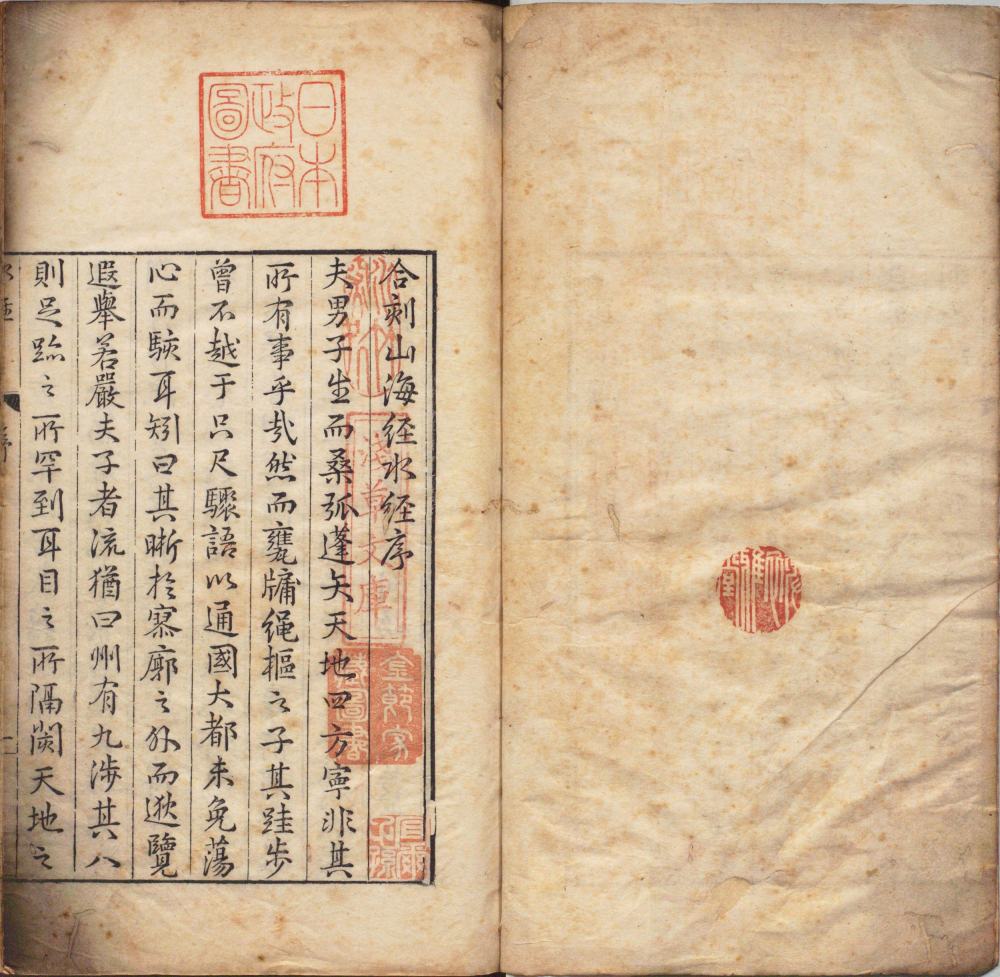 日本
政府
圖書
合刻山海経水経序
夫男子生而桑弧蓬矢天地四方寧非其
所有事乎㢤然而甕牖繩樞之子其跬步
曾不越于咫尺驟語以通國大都未免蕩
心而駭耳矧曰其晰於寥廓之外而遐覽
遐舉若嚴夫子者流猶曰州有九涉其八
則足跡之所罕到耳目之所隔閡天地之
淺草文庫
藏圖書
序